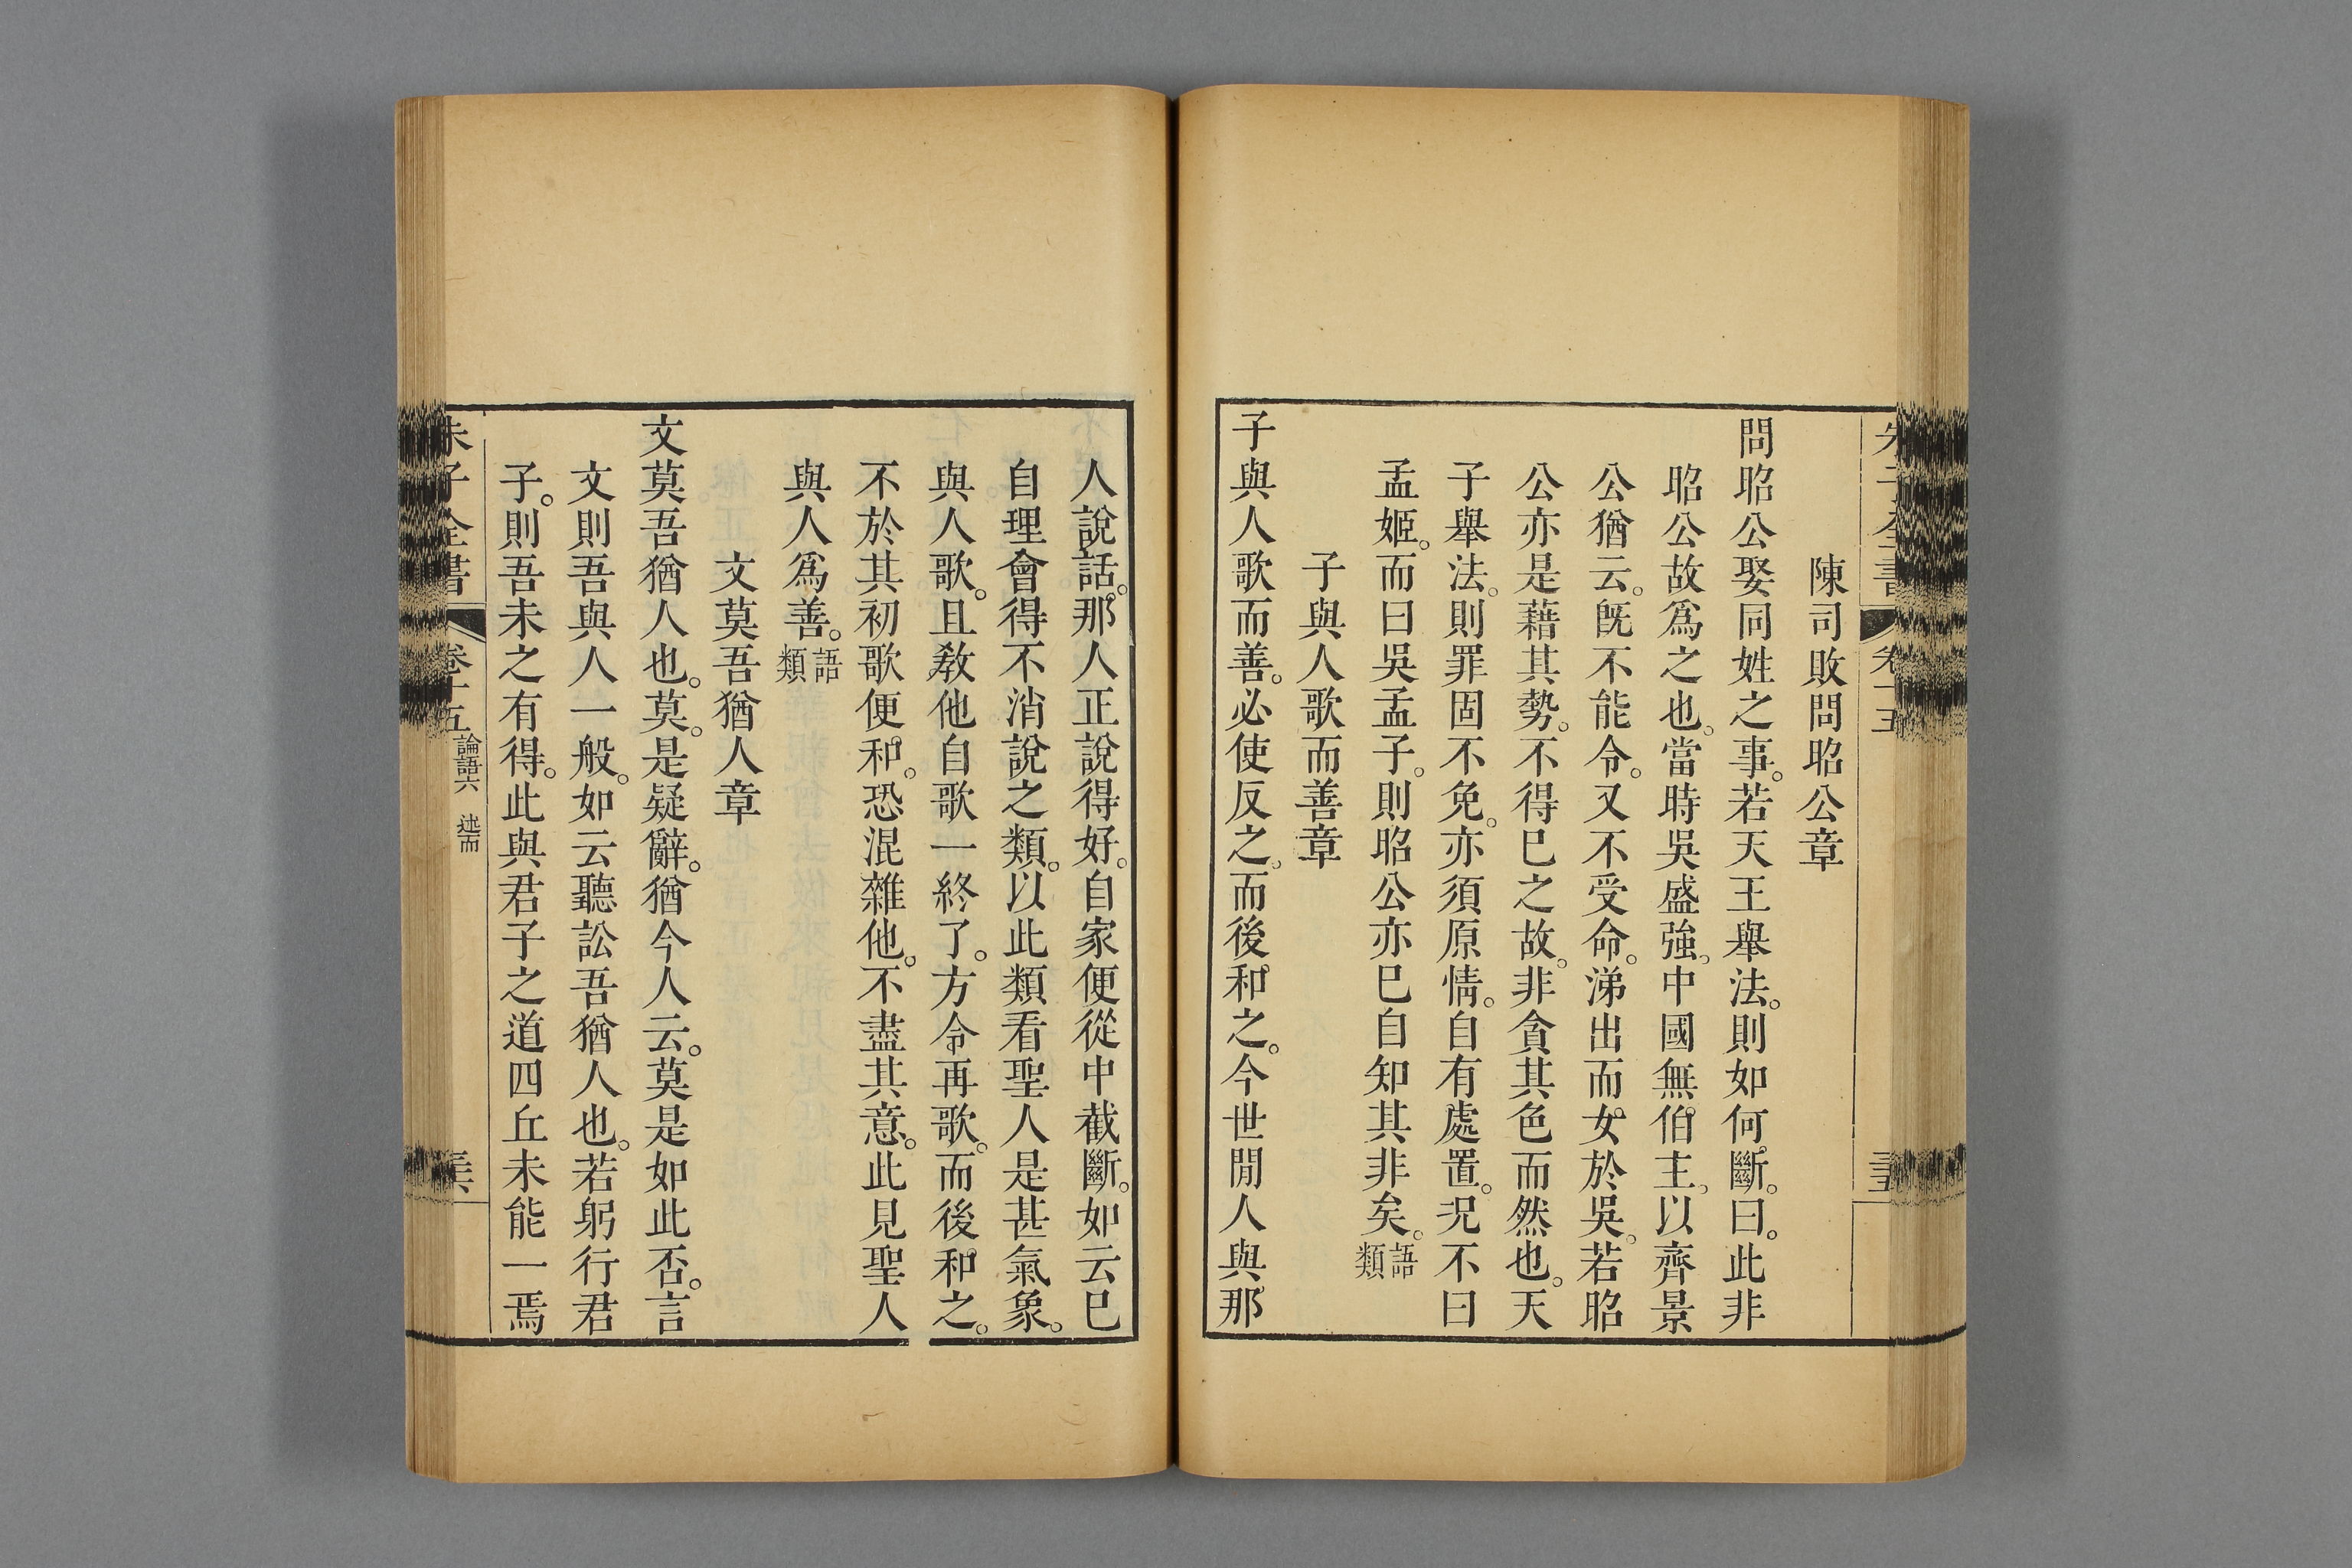 陳司敗問昭公章
問昭公娶同姓之事。若天王舉法。則如何。斷。曰。此非
昭公故爲之也。當時吳盛強。中國無伯主。以齊景
公猶云。旣不能令。又不受命。涕出而女於吳。若昭
公亦是藉其勢。不得已之故。非貪其色而然也。天
子舉法。則罪固不免。亦須原情。自有處置。況不曰
孟姬。而曰吳孟子。則昭公亦已自知其非矣。語類
子與人歌而善章
子與人歌而善。必使反之。而後和之。今世閒人與那
人說話。那人正說得好。自家便從中截斷。如云已
自理會得不消說之類。以此類看聖人是甚氣象。
與人歌。且敎他自歌一終了。方令再歌。而後和之。
不於其初歌便和。恐混雜他。不盡其意。此見聖人
與人爲善。語類
文莫吾猶人章
文莫吾猶人也。莫。是疑辭。猶今人云。莫是如此否。言
文則吾與人一般。如云聽訟吾猶人也。若躬行君
子。則吾未之有得。此與君子之道四丘未能一焉
朱子全書 卷十五 論語六 述而 三六